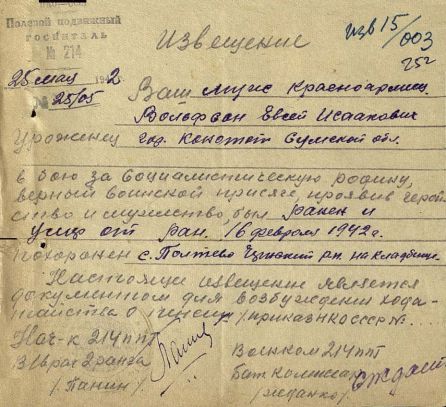 Полевой подвижный
госпиталь
№ 214
Извещение
изв 15/003
252
25 мая 1942
№ 25/05
Ваш муж Красноармеец
Вольфсон Евсей Исаакович
Уроженец гор. Конотоп Сумской обл.
в бою за социалистическую родину,
верный воинской присяге, проявив герой
ство и мужество, был ранен и
умер от ран. 16 февраля 1942 г.
Похоронен с. на кладбище
Настоящее извещение является
документом для возбуждения хода-
тайства о пенсии /приказ НКО СССР №...
Нач-к 214 ппг
В/врач 2 ранга
/Панин/
Военком 214 ппг
Бат. Комиссар
/Жданко/